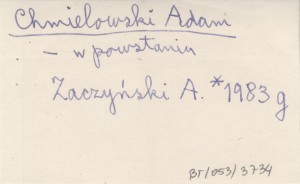 Chmielowski Adam
- w powstaniu
Zaczyński A. *1983 g
BT/053/3734